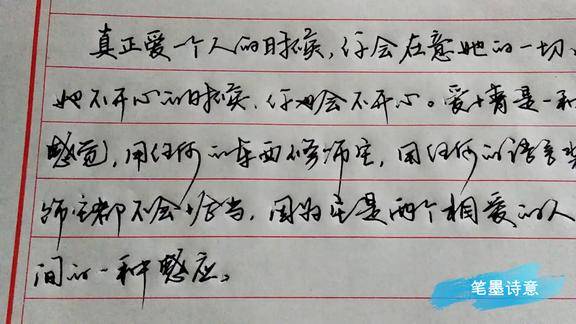 真正爱一个人的时候,你会在意她的一切,
她不开心的时候,你也会不开心。爱情是一种
感觉,用任何的东西来修饰它,用任何的语言
饰它都不会恰当,因为它是两个相爱的人
间的一种感应。
笔墨诗意